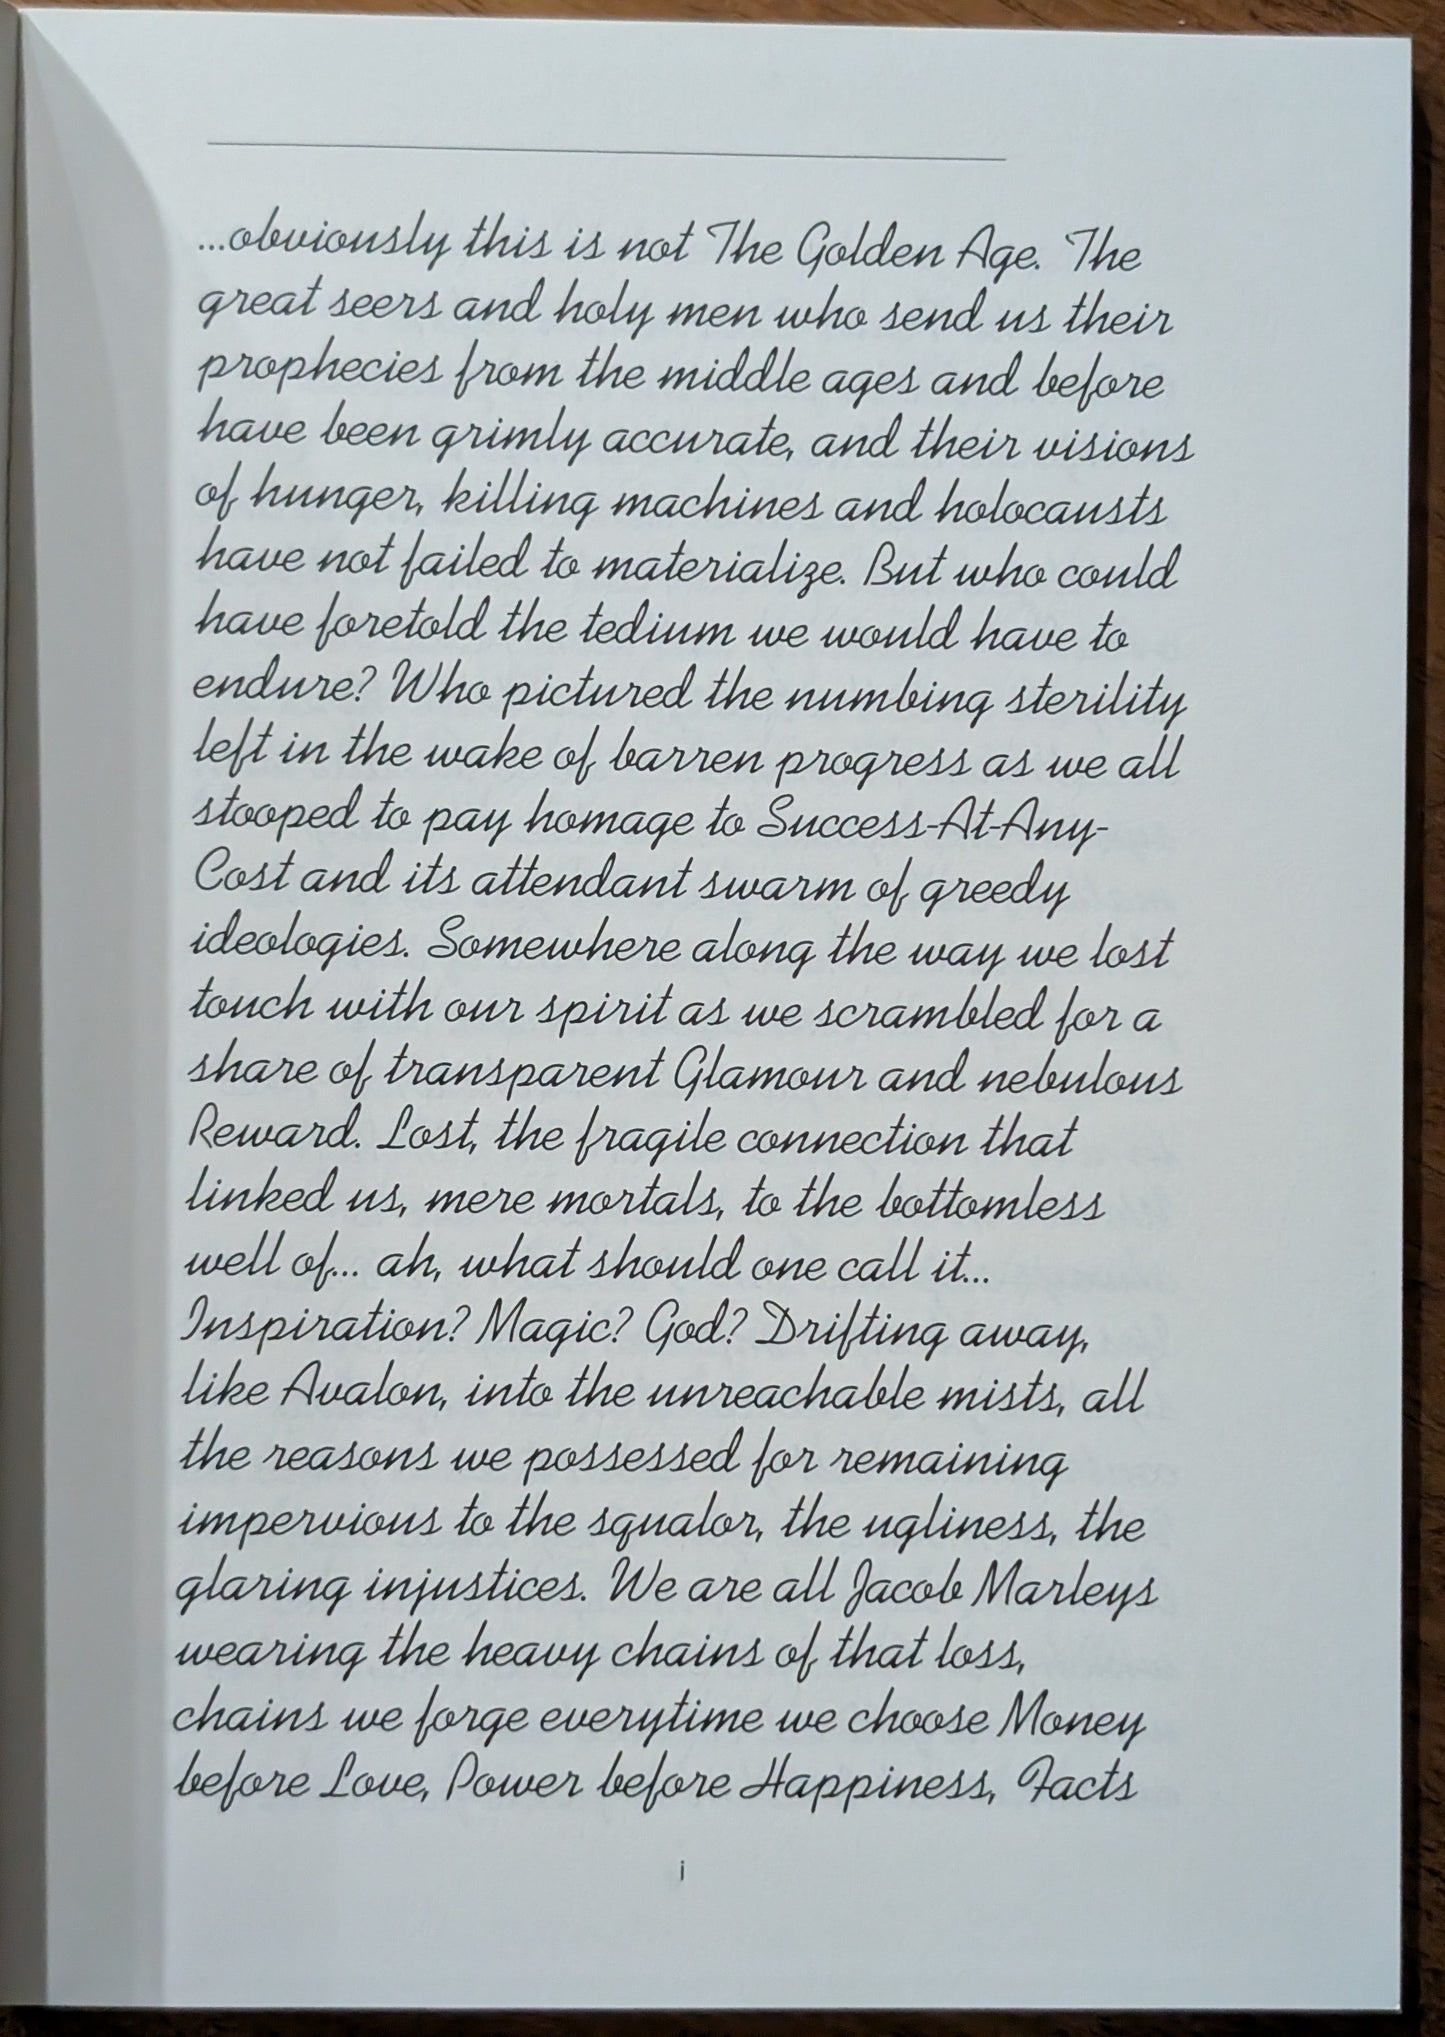 ...obviously this is not The Golden Age. The
great seers and holy men who send us their
prophecies from the middle ages and before
have been grimly accurate, and their visions
of hunger, killing machines and holocausts
have not failed to materialize. But who could
have foretold the tedium we would have to
endure? Who pictured the numbing sterility
left in the wake of barren progress as we all
stooped to pay homage to Success-At-Any-
Cost and its attendant swarm of greedy
ideologies. Somewhere along the way we lost
touch with our spirit as we scrambled for a
share of transparent Glamour and nebulous
Reward. Lost, the fragile connection that
linked us, mere mortals, to the bottomless
well of... ah, what should one call it...
Inspiration? Magic? God? Drifting away,
like Avalon, into the unreachable mists, all
the reasons we possessed for remaining
impervious to the squalor, the ugliness, the
glaring injustices. We are all Jacob Marleys
wearing the heavy chains of that loss,
chains we forge everytime we choose Money
before Love, Power before Happiness, Facts
i